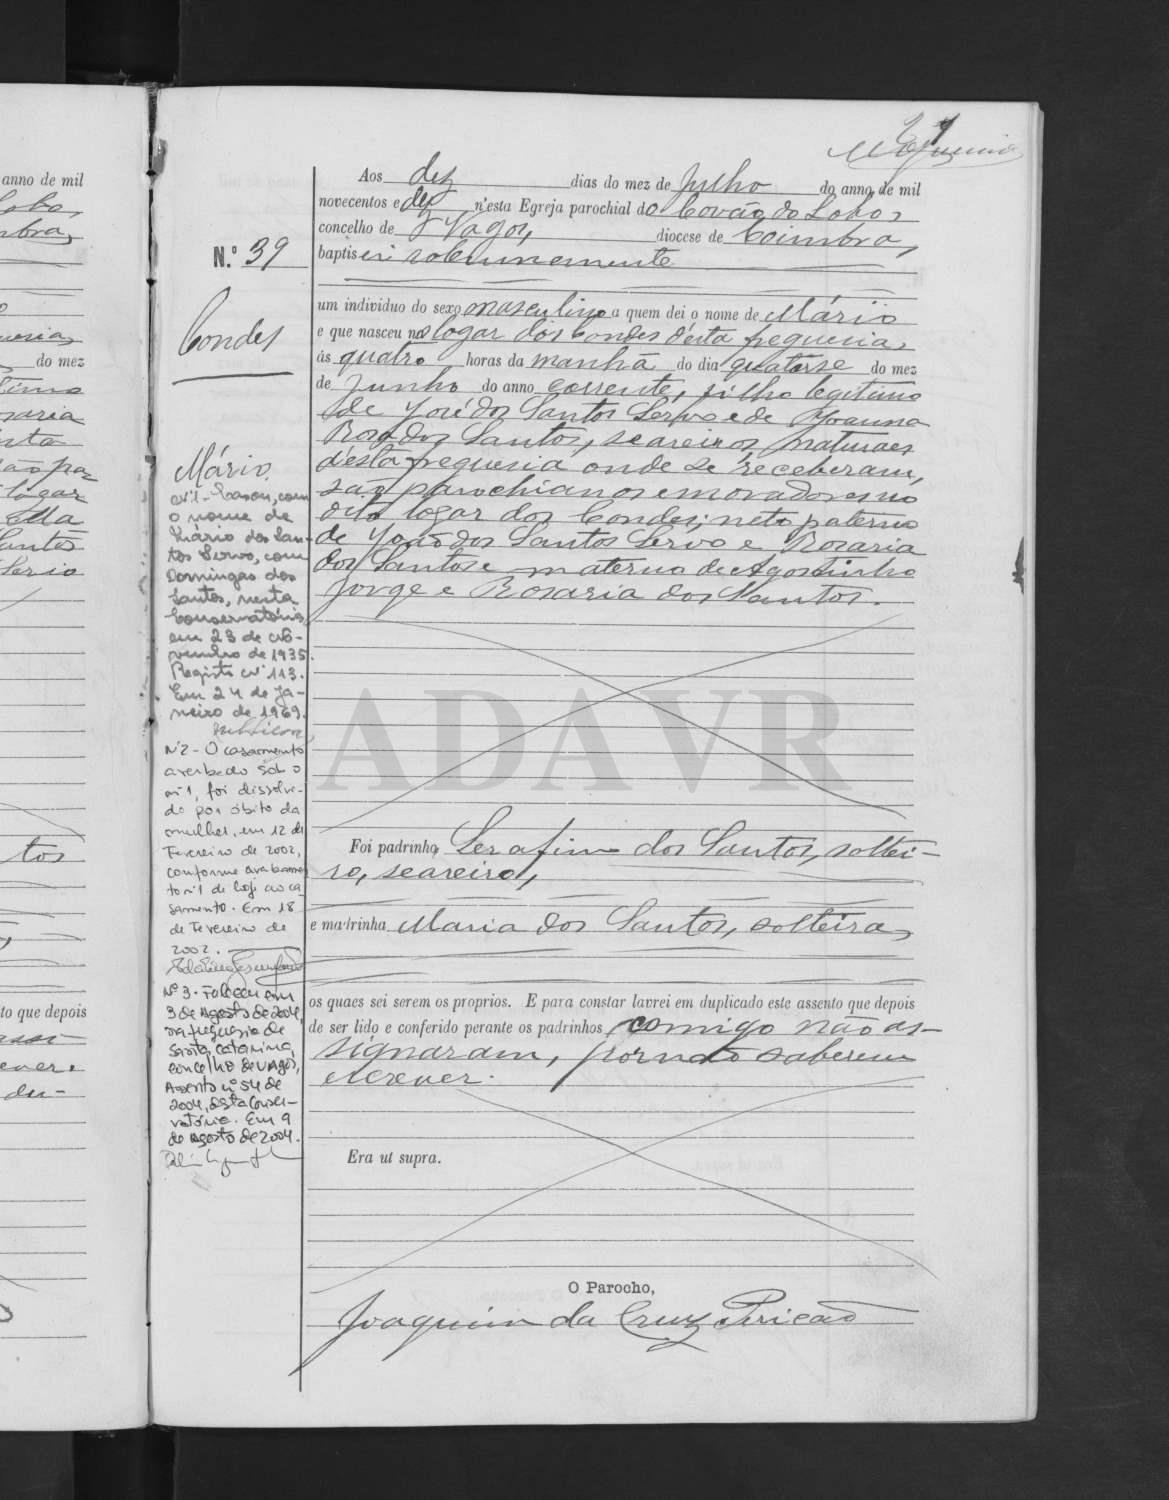 Aos dez dias do mez de Julho do anno de mil
novecentos e dez n'esta Egreja parochial do Covão do Lobo,
concelho de Vagos, diocese de Coimbra,
baptisei solemnemente
N.º 39
Condes
um individuo do sexo masculino a quem dei o nome de Mário
e que nasceu no logar dos Condes d'esta freguesia,
ás quatro horas da manhã do dia quatorse do mez
de Junho do anno corrente, filho legitimo
de José dos Santos Servo e de Joanna
Rosa dos Santos, seareiros, naturaes
d'esta freguesia onde se receberam,
são parochianos e moradores no
dito logar dos Condes; neto paterno
de João dos Santos Servo e Rosaria
dos Santos e materno de Agostinho
Jorge e Rosaria dos Santos.
Mário.
Nº1 - Casou, com
o nome de
Mário dos San-
tos Servo, com
Domingas dos
Santos, nesta
Conservatória
em 23 de No-
vembro de 1935.
Registo nº 113.
Em 24 de Ja-
neiro de 1969.
Nº2 - O casamento
averbado sob o
nº1, foi dissolvi-
do por óbito da
mulher, em 12 de
Fevereiro de 2002,
conforme averbamen-
to nº1 de hoje ao ca-
samento. Em 18
de Fevereiro de
2002.
Nº 3 - Faleceu em
3 de Agosto de 2004,
na freguesia de
Santa Catarina,
concelho de Vagos,
Assento nº 54 de
2004, desta Conser-
vatória. Em 9
de Agosto de 2004.
ADAVR
Foi padrinho Serafim dos Santos, soltei-
ro, seareiro,
e madrinha Maria dos Santos, solteira,
os quaes sei serem os proprios. E para constar lavrei em duplicado este assento que depois
de ser lido e conferido perante os padrinhos, comigo não as-
signaram, por não saberem
escrever.
Era ut supra.
O Parocho,
Joaquim da Cruz Pericão